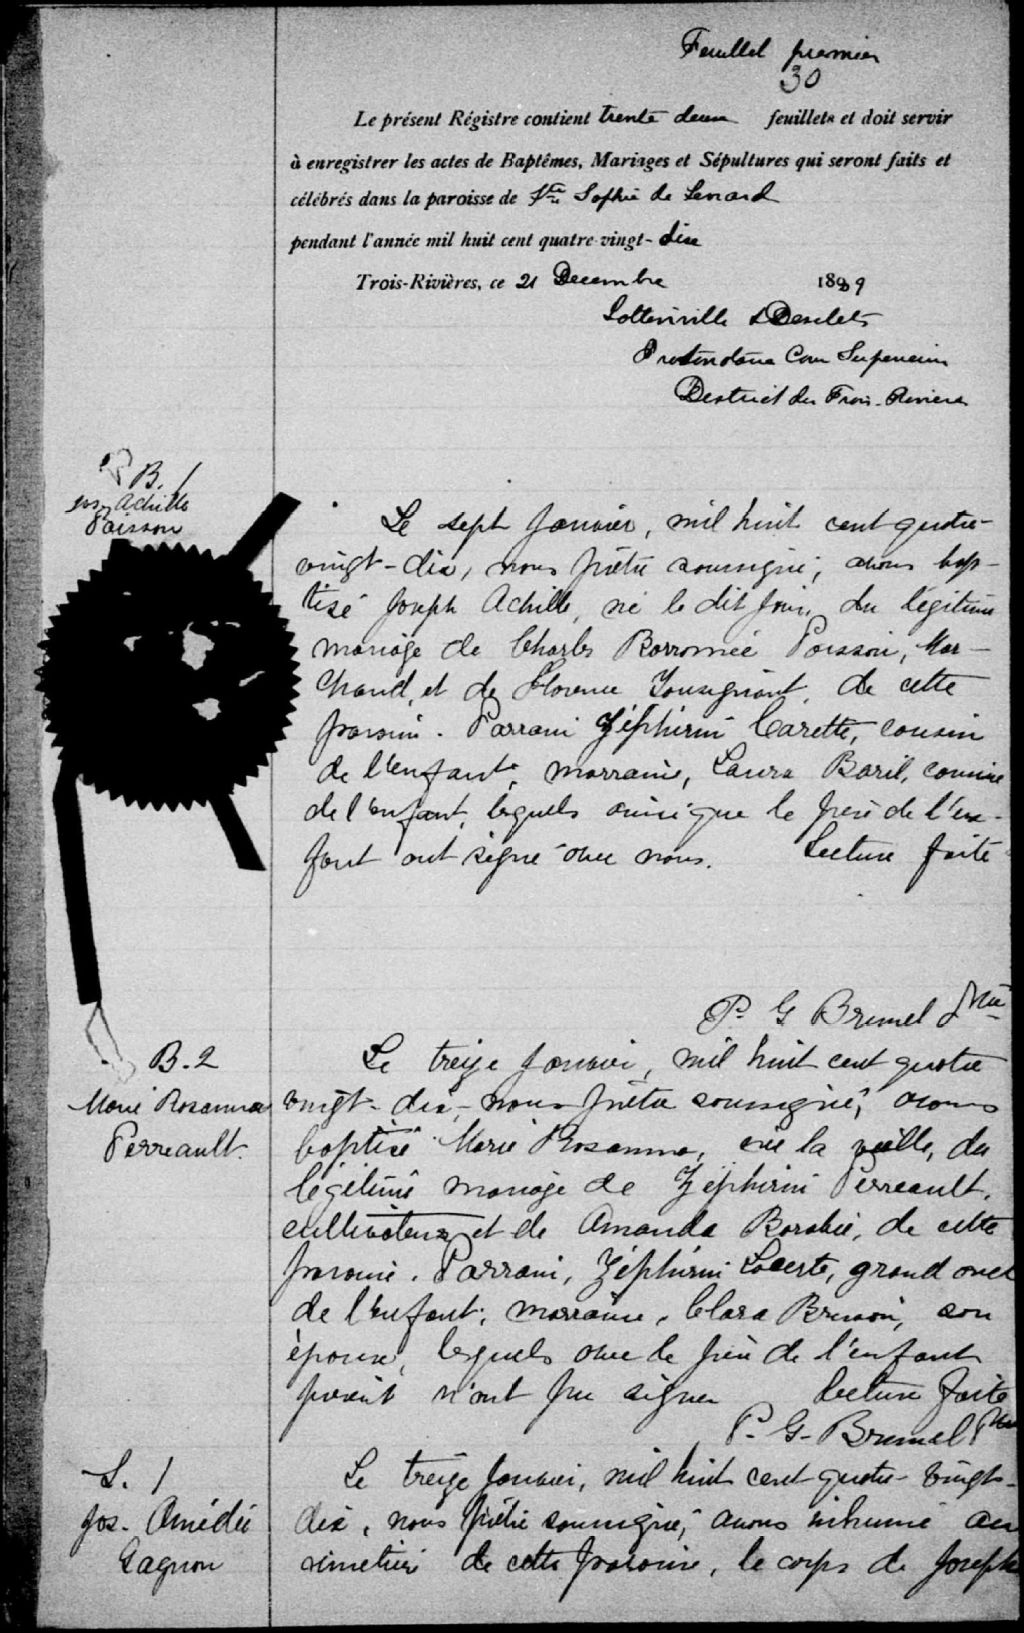 Feuillet premier
30
Le présent Régistre contient trente deux feuillets et doit servir
à enregistrer les actes de Baptêmes, Mariages et Sépultures qui seront faits et
célébrés dans la paroisse de Ste Sophie de Levrard
pendant l'année mil huit cent quatre-vingt-dix
Trois-Rivières, ce 21 Decembre 1889
Lottinville & Desilets
Protonotaire Cour Superieure
District des Trois-Rivieres
B. 1
Jos. Achille
Poisson
Le sept Janvier, mil huit cent quatre-
vingt-dix, nous prêtre soussigné, avons bap-
tisé Joseph Achille, né le dit jour, du légitime
mariage de Charles Borromée Poisson, Mar-
chand, et de Florence Tousignant, de cette
paroisse. Parrain Zéphirin Carette, cousin
de l'enfant, marraine, Laura Baril, cousine
de l'enfant, lesquels ainsi que le père de l'en-
fant ont signé avec nous. Lecture faite
P. G. Brunel Ptre
B. 2
Marie Rosanna
Perreault.
Le treize Janvier, mil huit cent quatre
vingt-dix, nous prêtre soussigné, avons
baptisé Marie Rosanna, née la veille, du
légitime mariage de Zéphirin Perreault,
cultivateur et de Amanda, de cette
paroisse. Parrain, Zéphirin Lacerte, grand oncle
de l'enfant; marraine, Clara Brisson, son
épouse, lesquels avec le père de l'enfant
présent n'ont pu signer Lecture faite
P. G. Brunel Ptre
S. 1
Jos. Amédée
Gagnon
Le treize Janvier, mil huit cent quatre-vingt-
dix, nous prêtre soussigné, avons inhumé au
cimetière de cette paroisse, le corps de Joseph